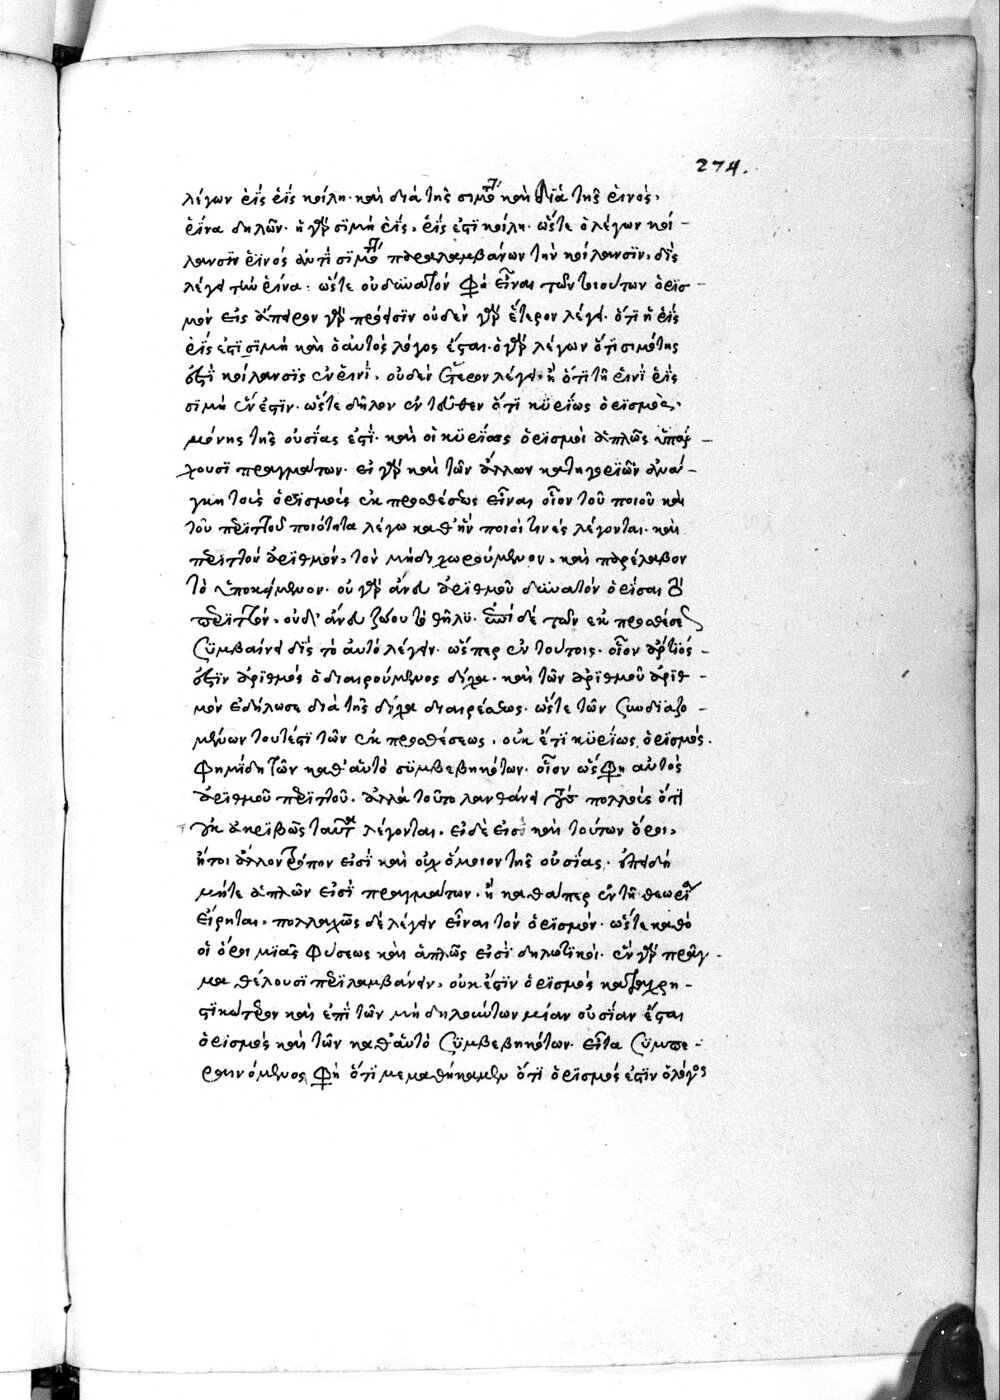 274.
λέγων ῥὶς ῥὶς κοίλη· καὶ διὰ τῆς σιμότητος καὶ διὰ τῆς ῥινὸς,
ῥῖνα δηλῶν· ἡ γὰρ σϊμὴ ῥὶς, ῥίς ἐστϊ κοίλη· ὥστε ὁ λέγων κοί-
λανσϊν ῥινὸς ἀντὶ σϊμότητος παραλαμβάνων τὴν κοίλανσϊν, δὶς
λέγει τὴν ῥῖνα· ὥστε οὐ δυνατόν φη εἶναι τῶν τοιούτων ὁρισ-
μόν εἰς ἄπειρον γὰρ πρόεισϊν οὐδὲν γὰρ ἕτερον λέγει· ὅτϊ ἡ ῥὶς
ῥίς ἐστϊ σϊμὴ καὶ ὁ αὐτὸς λόγος ἔσται· ὁ γὰρ λέγων ὅτϊ σιμότης
ἐστὶ κοίλανσϊς ἐν ῥινΐ, οὐδὲν ἕτερον λέγει· ἢ ὅτι τῇ ῥινῒ ῥὶς
σϊμὴ ἔνεστϊν· ὥστε δῆλον ἐντεῦθεν ὅτϊ κϋρΐως ὁρϊσμὸς
μόνης τῆς οὐσίας ἐστΐ· καὶ οἱ κϋρΐως ὁρϊσμοὶ ἁπλῶς ὑπάρ-
χουσϊ πραγμάτων· εἰ γὰρ καὶ τῶν ἄλλων κατηγορϊῶν ἀνάγ-
κη τοὺς ὁρϊσμοὺς ἐκ προσθέσεως εἶναι οἷον τοῦ ποιοῦ καὶ
τοῦ περϊττοῦ ποιότητα λέγω καθ' ἣν ποιοί τινες λέγονται· καὶ
περϊττὸν ἀρϊθμὸν, τὸν μὴ διχωρούμενον, καὶ παρέλαβον
τὸ ὑποκείμενον· οὐ γὰρ ἄνευ ἀρϊθμοῦ δυνατὸν ὁρίσαι τὸ
περϊττὸν, οὐδ' ἄνευ ζώου τὸ θῆλϋ· ἐπὶ δὲ τῶν ἐκ προσθέσεως
ζϋμβαίνει δὶς τὸ αὐτὸ λέγειν· ὥσπερ ἐν τούτοις· οἷον ἄρτϊός
ἐστϊν ἀρϊθμὸς ὁ διαιρούμενος δίχα· καὶ τὸν ἀρϊθμοῦ ἀρϊθ-
μὸν ἐδήλωσε διὰ τῆς δίχα διαιρέσεως· ὥστε τῶν συνδϊαζο-
μένων τουτέστϊ τῶν ἐκ προσθέσεως, οὐκ ἔστϊ κϋρΐως ὁρϊσμός.
φημὶ δὴ τῶν καθ' αὑτὸ σϋμβεβηκότων· οἷον ὥς φη αὐτὸς
ἀρϊθμοῦ περϊττοῦ. ἀλλὰ τοῦτο λανθάνει τοὺς πολλοὺς ὅτϊ
οὐκ ἀκρϊβῶς ταῦτα λέγονται. εἰ δὲ εἰσὶ καὶ τούτων ὅροι,
ἤτοι ἄλλον τρόπον εἰσῒ καὶ οὐχ ὅμοιον τῆς οὐσΐας. ἐπειδὴ
μήτε ἁπλῶν εἰσῒ πραγμάτων, ἢ καθάπερ ἐν τῇ θεωρίᾳ
εἴρηται, πολλαχῶς δὲ λέγειν εἶναι τὸν ὁρϊσμόν· ὥστε καθὸ
οἱ ὅροι μϊᾶς φύσεως καὶ ἁπλῶς εἰσῒ δηλωτϊκοί· ἓν γὰρ πρᾶγ-
μα θέλουσϊ περϊλαμβάνειν, οὐκ ἔστϊν ὁρϊσμὸς καταχρη-
στϊκώτερον καὶ ἐπῒ τῶν μὴ δηλούντων μίαν οὐσΐαν ἔσται
ὁρϊσμὸς καὶ τῶν καθ' αὑτὸ ζϋμβεβηκότων· εἶτα ζϋμπε-
ραινόμενος φη ὅτϊ μεμαθήκαμεν ὅτϊ ὁρϊσμός ἐστϊν ὁ λόγος